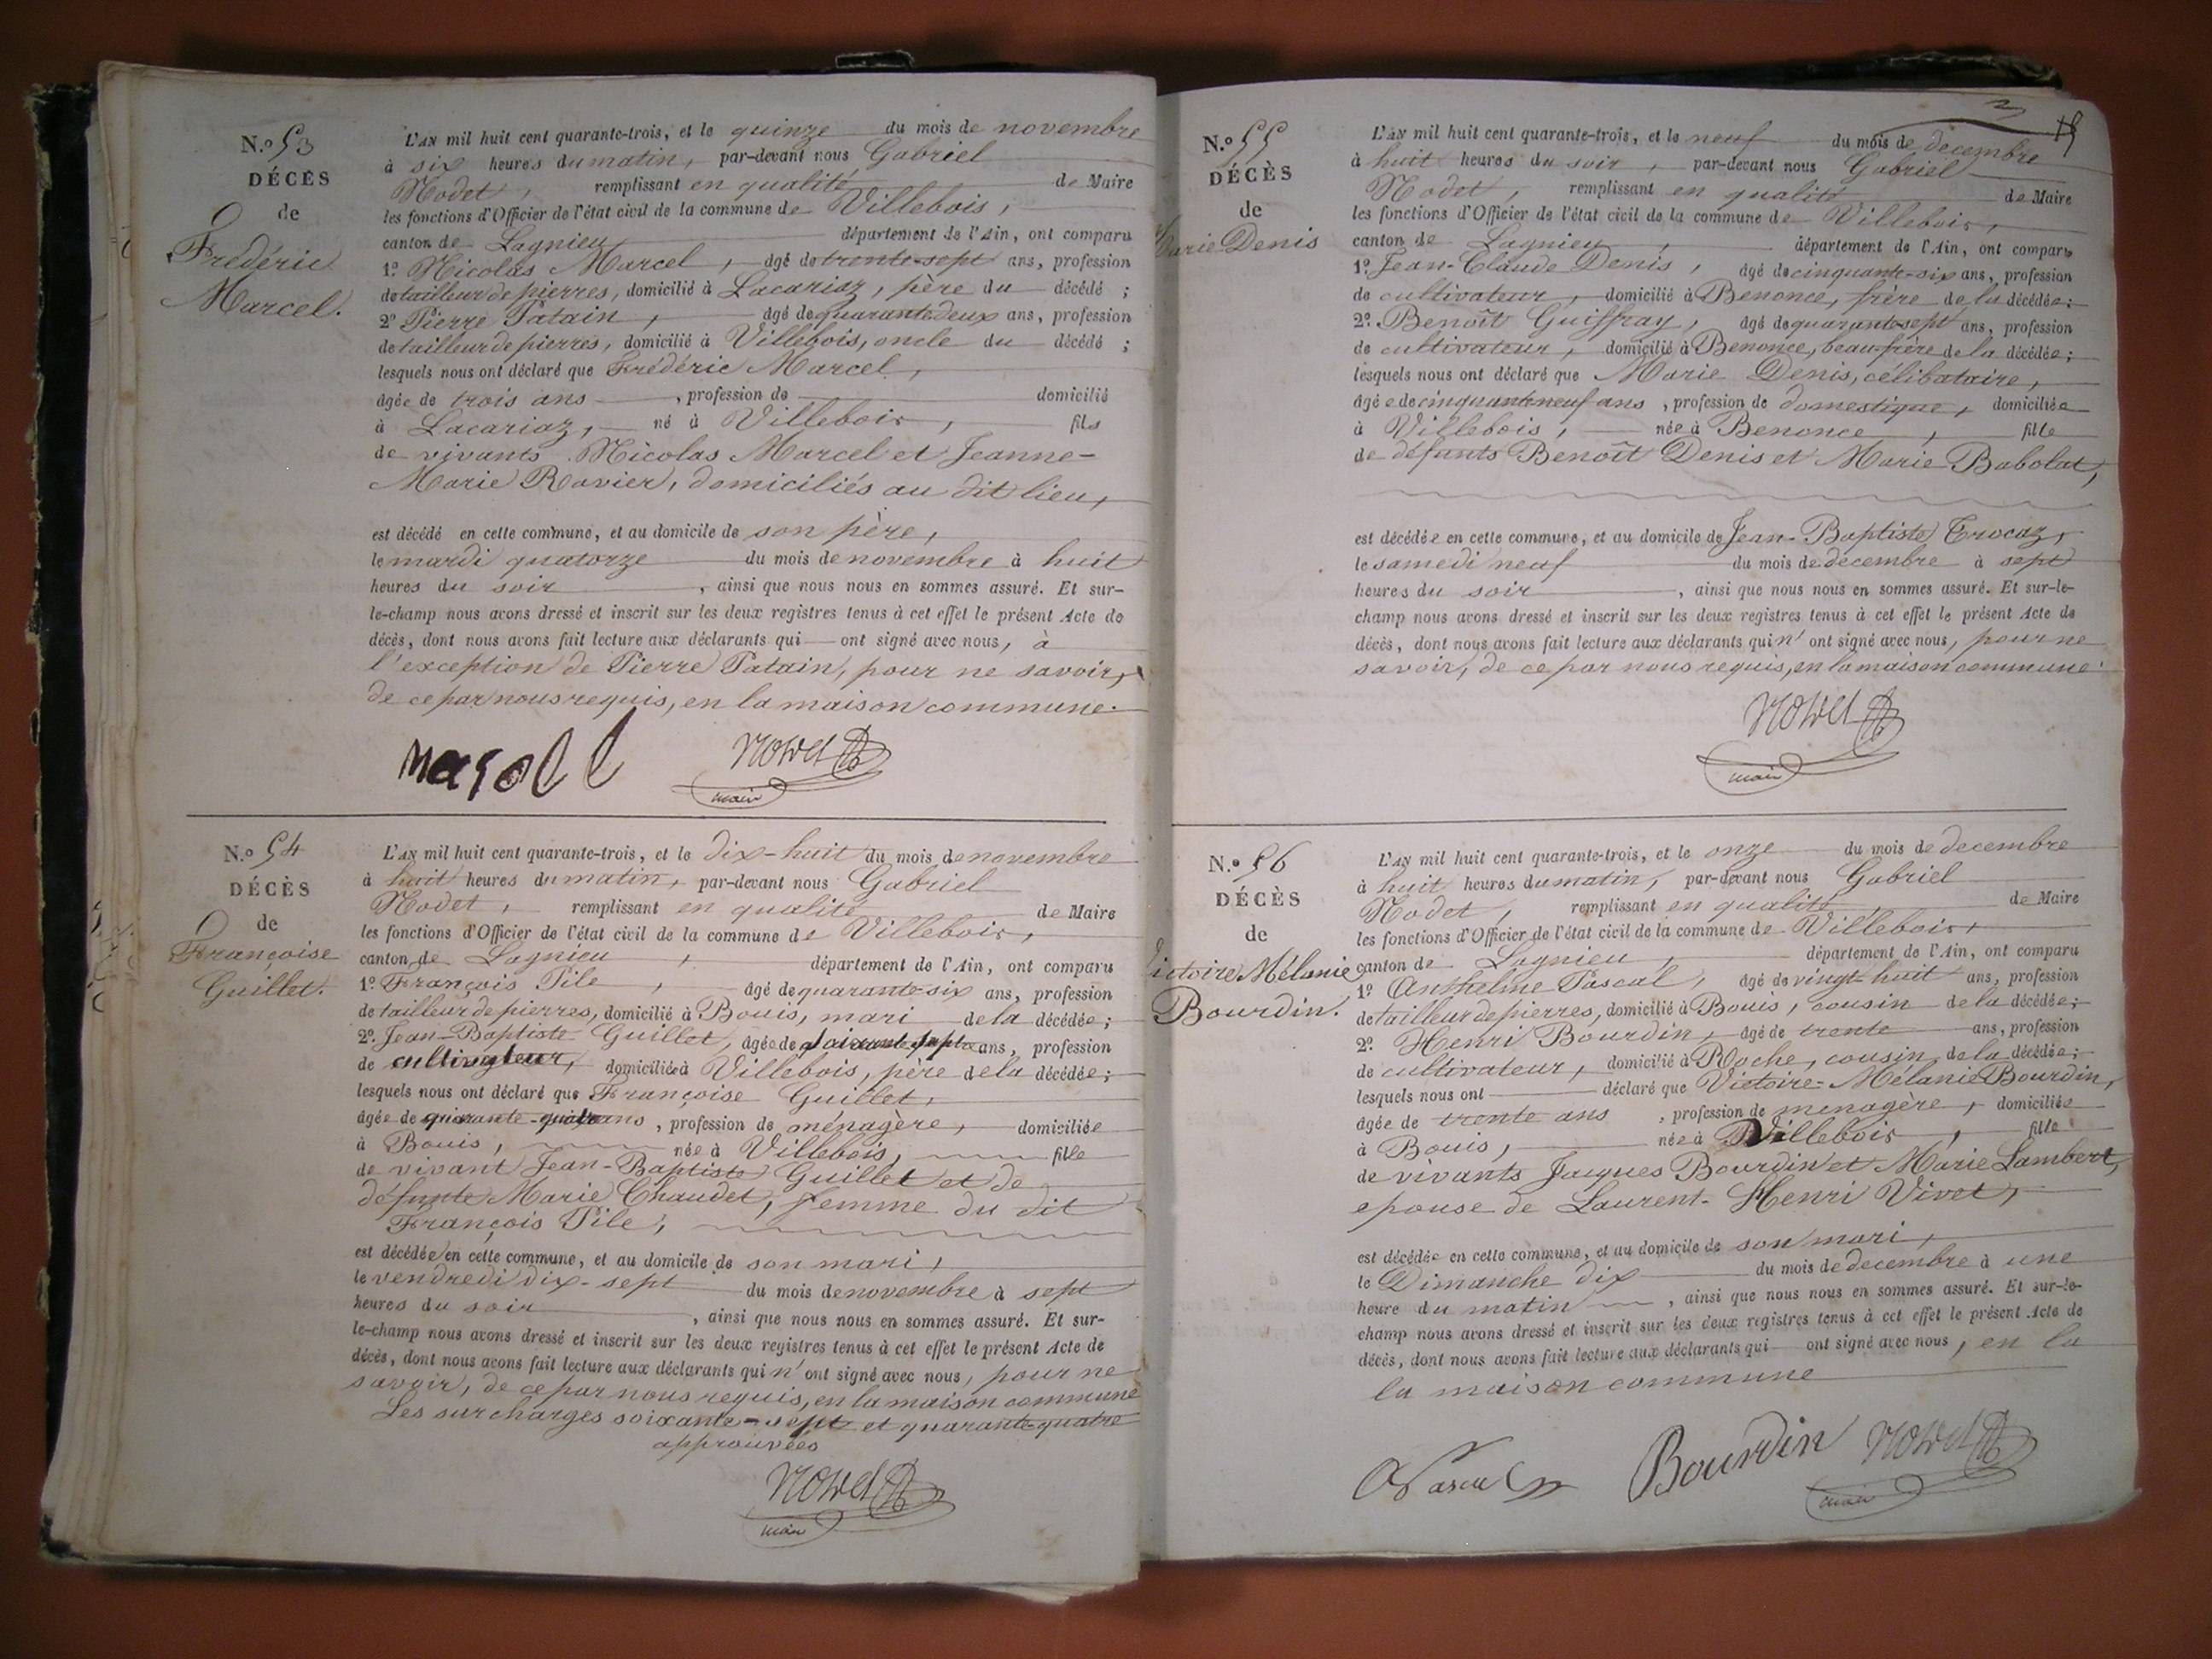 N.o 53
DÉCÈS
de
Frédéric
Marcel.
L'AN mil huit cent quarante-trois, et le quinze du mois de novembre
à six heures du matin, par-devant nous Gabriel
Nodet, remplissant en qualité de Maire
les fonctions d'Officier de l'état civil de la commune de Villebois,
canton de Lagnieu département de l'Ain, ont comparu
1.o Nicolas Marcel, âgé de trente-sept ans, profession
de tailleur de pierres, domicilié à Lacariaz, père du décédé ;
2.o Pierre Patain, âgé de quarante deux ans, profession
de tailleur de pierres, domicilié à Villebois, oncle du décédé ;
lesquels nous ont déclaré que Frédéric Marcel,
âgée de trois ans, profession de domicilié
à Lacariaz, né à Villebois, fils
de vivants Nicolas Marcel et Jeanne-
Marie Ravier, domiciliés au dit lieu,
est décédé en cette commune, et au domicile de son père,
le mardi quatorze du mois de novembre à huit
heures du soir, ainsi que nous nous en sommes assuré. Et sur-
le-champ nous avons dressé et inscrit sur les deux registres tenus à cet effet le présent Acte de
décès, dont nous avons fait lecture aux déclarants qui ont signé avec nous, à
l'exception de Pierre Patain, pour ne savoir,
de ce par nous requis, en la maison commune.
Nodet
maire
N.o 54
DÉCÈS
de
Françoise
Guillet.
L'AN mil huit cent quarante-trois, et le dix-huit du mois de novembre
à huit heures du matin, par-devant nous Gabriel
Nodet, remplissant en qualité de Maire
les fonctions d'Officier de l'état civil de la commune de Villebois,
canton de Lagnieu, département de l'Ain, ont comparu
1.o François Pile, âgé de quarante-six ans, profession
de tailleur de pierres, domicilié à Bouis, mari de la décédée ;
2.o Jean-Baptiste Guillet, âgée de soixante sept ans, profession
de cultivateur, domiciliéà Villebois, père de la décédée ;
lesquels nous ont déclaré que Françoise Guillet,
âgée de quarante-quatre ans, profession de ménagère, domiciliée
à Bouis, née à Villebois, fille
de vivant Jean-Baptiste Guillet et de
défunte Marie Chaudet, femme du dit
François Pile,
est décédée en cette commune, et au domicile de son mari,
le vendredi dix-sept du mois de novembre à sept
heures du soir, ainsi que nous nous en sommes assuré. Et sur-
le-champ nous avons dressé et inscrit sur les deux registres tenus à cet effet le présent Acte de
décès, dont nous avons fait lecture aux déclarants qui n'ont signé avec nous, pour ne
savoir, de ce par nous requis, en la maison commune
Les surcharges soixante-sept et quarante-quatre
approuvées
Nodet
maire
N.o 55
DÉCÈS
de
Marie Denis
L'AN mil huit cent quarante-trois, et le neuf du mois de decembre
à huit heures du soir, par-devant nous Gabriel
Nodet, remplissant en qualité de Maire
les fonctions d'Officier de l'état civil de la commune de Villebois,
canton de Lagnieu, département de l'Ain, ont comparu
1.o Jean-Claude Denis, âgé de cinquante-six ans, profession
de cultivateur, domicilié à Benonce, frère de la décédée ;
2.o Benoît Guiffray, âgé de quarante-sept ans, profession
de cultivateur, domicilié à Benonce, beau-frère de la décédée ;
lesquels nous ont déclaré que Marie Denis, célibataire,
âgée de cinquante neuf ans, profession de domestique, domiciliée
à Villebois, née à Benonce, fille
de défunts Benoît Denis et Marie Babolat,
est décédée en cette commune, et au domicile de Jean-Baptiste Trocaz,
le samedi neuf du mois de decembre à sept
heures du soir, ainsi que nous nous en sommes assuré. Et sur-le-
champ nous avons dressé et inscrit sur les deux registres tenus à cet effet le présent Acte de
décès, dont nous avons fait lecture aux déclarants qui n'ont signé avec nous, pour ne
savoir, de ce par nous requis, en la maison commune.
Nodet
maire
N.o 56
DÉCÈS
de
Victoire Mélanie
Bourdin.
L'AN mil huit cent quarante-trois, et le onze du mois de decembre
à huit heures du matin, par-devant nous Gabriel
Nodet, remplissant en qualité de Maire
les fonctions d'Officier de l'état civil de la commune de Villebois,
canton de Lagnieu, département de l'Ain, ont comparu
1.o Anthelme Pascal, âgé de vingt-huit ans, profession
de tailleur de pierres, domicilié à Bouis, cousin de la décédée ;
2.o Henri Bourdin, âgé de trente ans, profession
de cultivateur, domicilié à Roche, cousin de la décédée ;
lesquels nous ont déclaré que Victoire-Mélanie Bourdin,
âgée de trente ans, profession de menagère, domiciliée
à Bouis, née à Villebois, fille
de vivants Jacques Bourdin et Marie Lambert,
epouse de Laurent-Henri Vivet,
est décédée en cette commune, et au domicile de son mari,
le Dimanche dix du mois de decembre à une
heure du matin, ainsi que nous nous en sommes assuré. Et sur-le-
champ nous avons dressé et inscrit sur les deux registres tenus à cet effet le présent Acte de
décès, dont nous avons fait lecture aux déclarants qui ont signé avec nous, en la
la maison commune
APascal Bourdin Nodet
maire